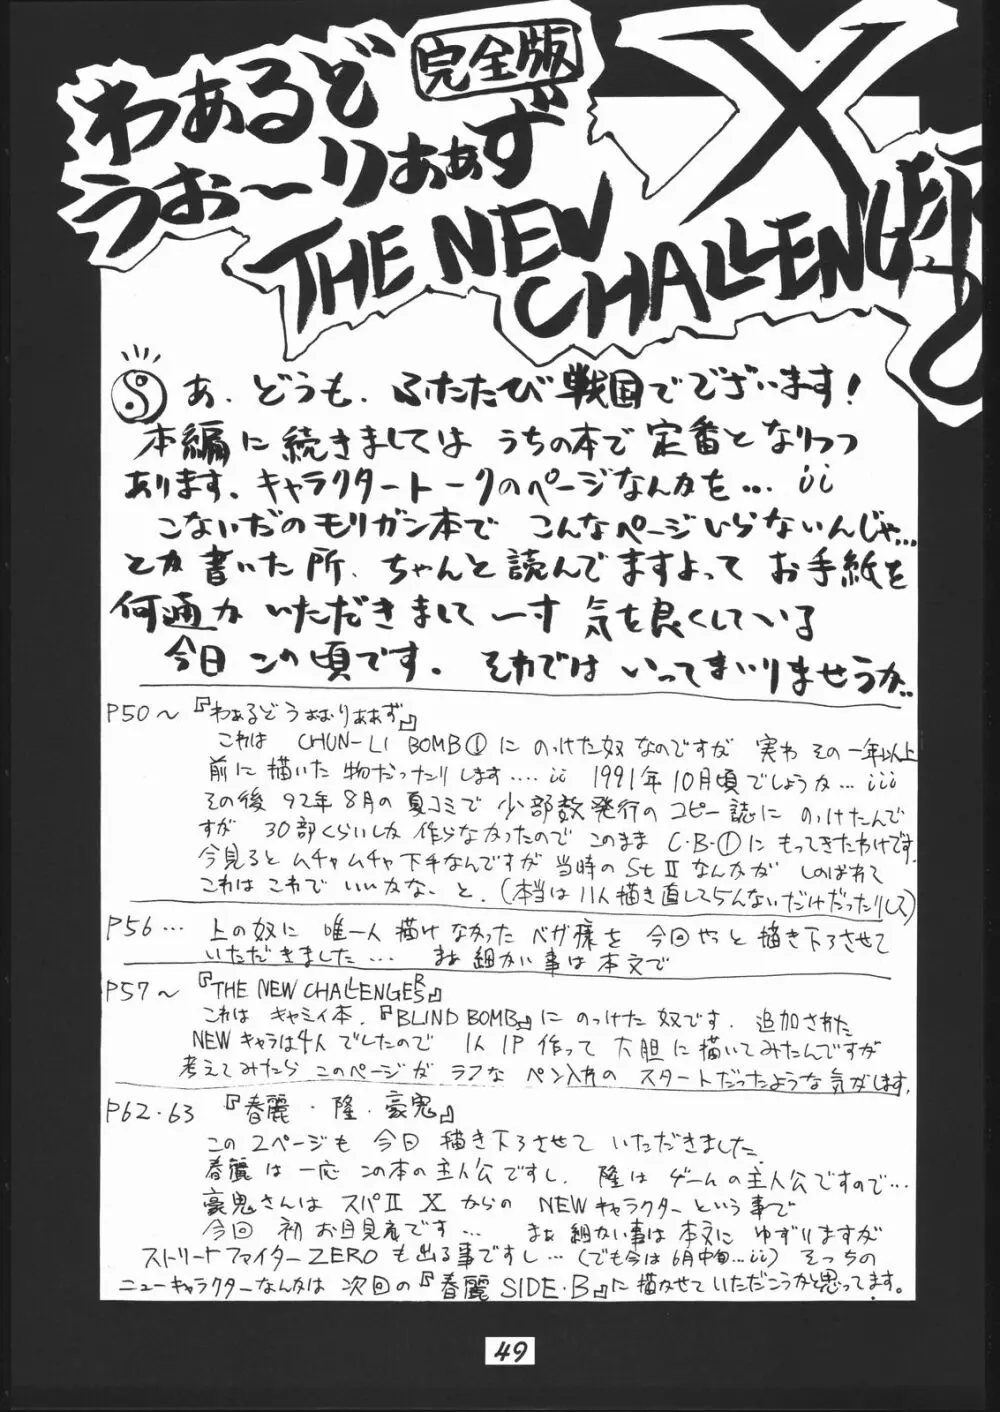 わぁるど 完全版
うお〜りあぁず
X
THE NEW
CHALLENGER
あ、どうも、ふたたび戦国でございます!
本編に続きましては うちの本で定番となりつつ
あります、キャラクタートークのページなんかを… ii
こないだのモリガン本で こんなページいらないんじゃ…
とか書いた所、ちゃんと読んでますよって お手紙を
何通か いただきまして 一寸 気を良くしている
今日この頃です。それでは いってまいりませうか..
P50〜『わぁるどうぉむりあぁず』
これは CHUN-LI BOMB①に のっけた奴なのですが 実わ その一年以上
前に描いた物だったりします....ii 1991年10月頃でしょうか…iii
その後 92年8月の夏コミで 少部数発行の コピー誌に のっけたんで
すが 30部くらいしか 作らなかったので このまま C・B・①に もってきたわけです。
今見ると ムチャムチャ下手なんですが 当時の StⅡなんかが しのばれて
これは これで いいかな、と。(本当は 11人 描き直してらんないだけだったり(レス)
P56… 上の奴に 唯一人 描けなかった ベガ様を 今回やっと 描き下ろさせて
いただきました… まぁ 細かい事は 本文で
P57〜『THE NEW CHALLENGERS』
これは キャミィ本、『BLIND BOMB』に のっけた奴です。追加された
NEWキャラは4人でしたので 1人1P作って 大胆に描いてみたんですが
考えてみたら このページが ラフな ペン入れの スタートだったような気がします。
P62・63 『春麗・隆・豪鬼』
この2ページも 今回 描き下ろさせて いただきました
春麗は一応 この本の主人公ですし、隆は ゲームの主人公ですので…
豪鬼さんは スパⅡXからの NEWキャラクター という事で
今回 初お目見えです… まぁ 細かい事は本文に ゆずりますが
ストリートファイターZEROも出る事ですし…(でも今は6月中旬…ii) そっちの
ニューキャラクターなんかは 次回の『春麗SIDE・B』に描かせていただこうかと思ってます。
49